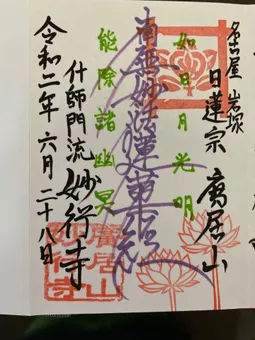 名古屋 岩塚
日蓮宗 廣居山
如日月光明
南無妙法蓮華經
能除諸幽冥
什師門流 妙行寺
令和二年六月二十八日